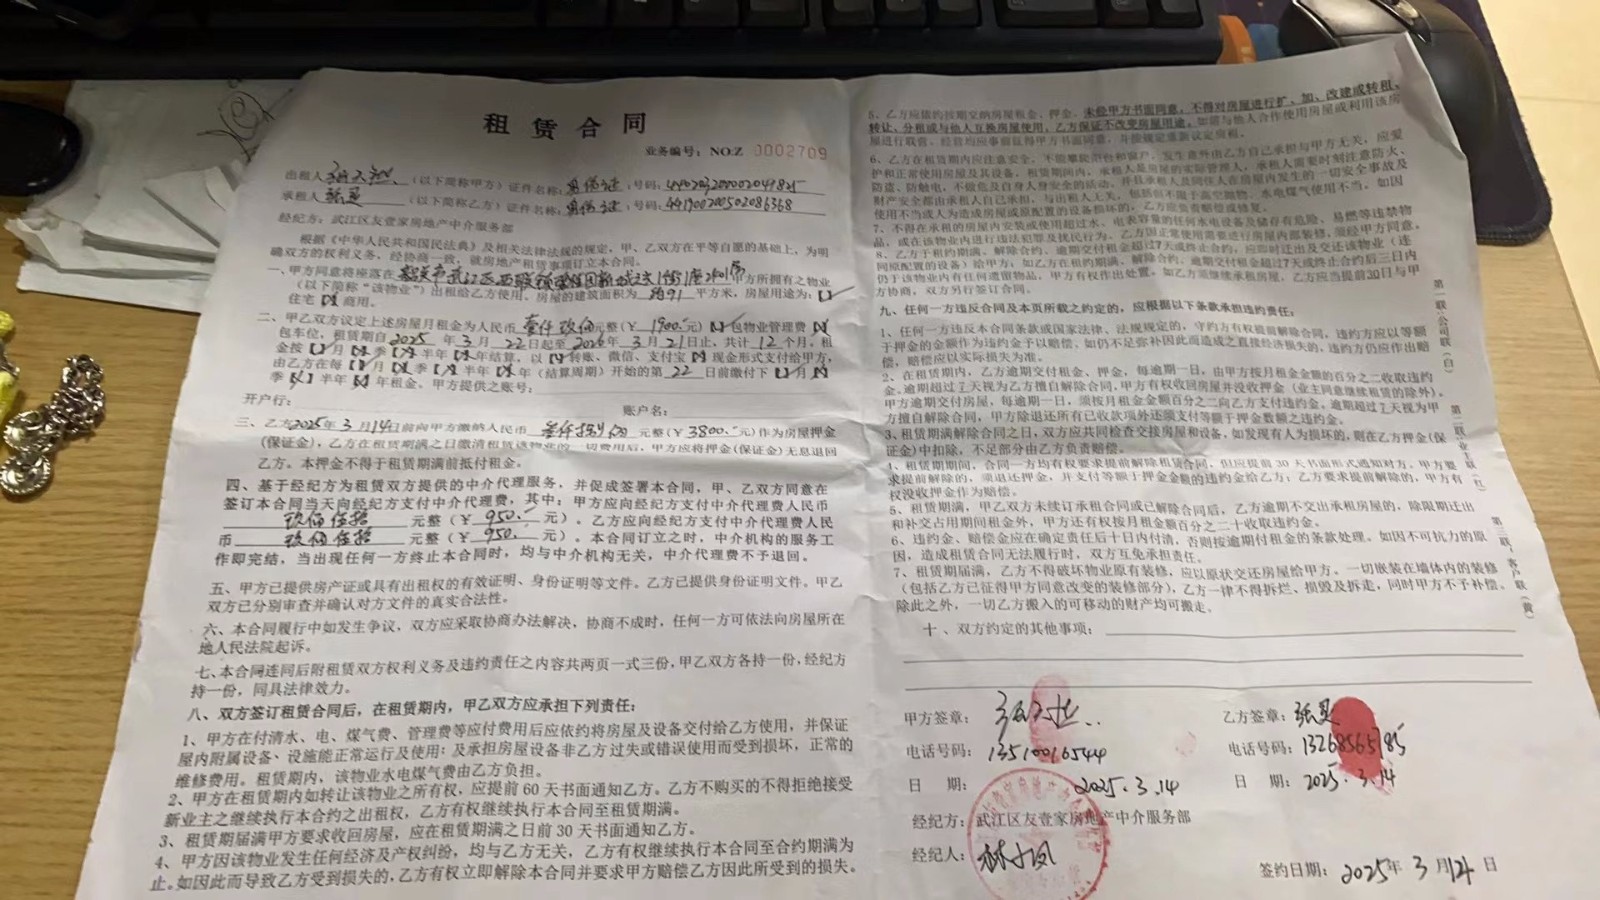 租赁合同
业务编号：NO:Z 0002709
出租人 （以下简称甲方）证件名称：身份证；号码：
承租人 （以下简称乙方）证件名称：身份证；号码：441900200502086368
经纪方：武江区友壹家房地产中介服务部
根据《中华人民共和国民法典》及相关法律法规的规定，甲、乙双方在平等自愿的基础上，为明
确双方的权利义务，经协商一致，就房地产租赁事项订立本合同。
一、甲方同意将座落在 方所拥有之物业
（以下简称“该物业”）出租给乙方使用。房屋的建筑面积为 约91 平方米，房屋用途为：【】
住宅【】商用。
二、甲乙双方议定上述房屋月租金为人民币 壹仟玖佰 元整（￥ 1900.- 元）【】包物业管理费【】
包车位，租赁期自 2025 年 3 月 22 日起至 2026 年 3 月 21 日止，共计 12 个月。租
金按【】月【】季【】半年【】年结算，以【】转账、微信、支付宝【】现金形式支付给甲方，
由乙方在每【】月【】季【】半年【】年（结算周期）开始的第 22 日前缴付下【】月【】
季【】半年【】年租金。甲方提供之账号：
开户行： 账户名：
三、乙方 2025年 3 月 14 日前向甲方缴纳人民币 叁仟捌佰 元整（￥ 3800.- 元）作为房屋押金
（保证金），乙方在租赁期满之日缴清租赁该物业的一切费用后，甲方应将押金（保证金）无息退回
乙方。本押金不得于租赁期满前抵付租金。
四、基于经纪方为租赁双方提供的中介代理服务，并促成签署本合同，甲、乙双方同意在
签订本合同当天向经纪方支付中介代理费，其中：甲方应向经纪方支付中介代理费人民币
玖佰伍拾 元整（￥ 950.- 元）。乙方应向经纪方支付中介代理费人民
币 玖佰伍拾 元整（￥ 950. 元）。本合同订立之时，中介机构的服务工
作即完结，当出现任何一方终止本合同时，均与中介机构无关，中介代理费不予退回。
五、甲方已提供房产证或具有出租权的有效证明、身份证明等文件。乙方已提供身份证明文件。甲乙
双方已分别审查并确认对方文件的真实合法性。
六、本合同履行中如发生争议，双方应采取协商办法解决，协商不成时，任何一方可依法向房屋所在
地人民法院起诉。
七、本合同连同后附租赁双方权利义务及违约责任之内容共两页一式三份，甲乙双方各持一份，经纪方
持一份，同具法律效力。
八、双方签订租赁合同后，在租赁期内，甲乙双方应承担下列责任：
1、甲方在付清水、电、煤气费、管理费等应付费用后应依约将房屋及设备交付给乙方使用，并保证
屋内附属设备、设施能正常运行及使用：及承担房屋设备非乙方过失或错误使用而受到损坏，正常的
维修费用。租赁期内，该物业水电煤气费由乙方负担。
2、甲方在租赁期内如转让该物业之所有权，应提前60天书面通知乙方。乙方不购买的不得拒绝接受
新业主之继续执行本合约之出租权，乙方有权继续执行本合同至租赁期满。
3、租赁期届满甲方要求收回房屋，应在租赁期满之日前30天书面通知乙方。
4、甲方因该物业发生任何经济及产权纠纷，均与乙方无关，乙方有权继续执行本合同至合约期满为
止。如因此而导致乙方受到损失的，乙方有权立即解除本合同并要求甲方赔偿乙方因此所受到的损失。
5、乙方应依约按期交纳房屋租金、押金。未经甲方书面同意，不得对房屋进行扩、加、改建或转租、
转让、分租或与他人互换房屋使用，乙方保证不改变房屋用途。如需与他人合作使用房屋或利用该房
屋进行联营、经营均应事前征得甲方书面同意，并按规定重新议定房租。
6、乙方在租赁期内应注意安全，不能攀爬阳台和窗户，发生意外由乙方自己承担与甲方无关，应爱
护和正常使用房屋及其设备，租赁期间内，承租人是房屋的实际管理人，承租人需要时刻注意防火、
防盗、防触电，不做危及自身人身安全的活动，并且承租人及同住人在房屋内发生的一切安全事故及
财产安全都由承租人自己承担，与出租人无关，包括但不限于高空抛物、水电煤气使用不当。如因
使用不当或人为造成房屋或原配置的设备损坏的，乙方应负责赔偿或修复。
7、不得在承租的房屋内安装或使用超过水、电表容量的任何水电设备及储存有危险、易燃等违禁物
品，或在该物业内进行违法犯罪及扰民行为。乙方因正常使用需要进行房屋内部装修，须经甲方同意。
8、乙方于租赁期满、解除合约、逾期交付租金超过7天或终止合约，应即时迁出及交还该物业（连
同原配置的设备）给甲方；如乙方在租赁期满、解除合约、逾期交付租金超过7天或终止合约后三日内
仍于该物业内有任何遗留物品，甲方有权作出处置。如乙方须继续承租房屋，乙方应当提前30日与甲
方协商，双方另行签订合同。
九、任何一方违反合同及本页所载之约定的，应根据以下条款承担违约责任：
1、任何一方违反本合同条款或国家法律、法规规定的，守约方有权提前解除合同，违约方应以等额
于押金的金额作为违约金予以赔偿，如仍不足弥补因此而造成之直接经济损失的，违约方仍应作出赔
偿，赔偿应以实际损失为准。
2、在租赁期内，乙方逾期交付租金、押金，每逾期一日，由甲方按月租金金额的百分之二收取违约
金。逾期超过7天视为乙方擅自解除合同，甲方有权收回房屋并没收押金（业主同意继续租赁的除外）。
甲方逾期交付房屋，每逾期一日，须按月租金金额百分之二向乙方支付违约金。逾期超过7天视为甲
方擅自解除合同，甲方除退还所有已收款项外还须支付等额于押金数额之违约金。
3、租赁期满解除合同之日，双方应共同检查交接房屋和设备，如发现有人为损坏的，则在乙方押金（保
证金）中扣除，不足部分由乙方负责赔偿。
4、租赁期期间，合同一方均有权要求提前解除租赁合同，但应提前30天书面形式通知对方。甲方要
求提前解除的，须退还押金，并支付等额于押金金额的违约金给乙方；乙方要求提前解除的，甲方有
权没收押金作为赔偿。
5、租赁期满，甲乙双方未续订承租合同或已解除合同后，乙方逾期不交出承租房屋的，除限期迁出
和补交占用期间租金外，甲方还有权按月租金额百分之二十收取违约金。
6、违约金、赔偿金应在确定责任后十日内付清，否则按逾期付租金的条款处理。如因不可抗力的原
因，造成租赁合同无法履行时，双方互免承担责任。
7、租赁期届满，乙方不得破坏物业原有装修，应以原状交还房屋给甲方。一切嵌装在墙体内的装修
（包括乙方已征得甲方同意改变的装修部分），乙方一律不得拆烂、损毁及拆走，同时甲方不予补偿。
除此之外，一切乙方搬入的可移动的财产均可搬走。
十、双方约定的其他事项：
甲方签章： 乙方签章：
电话号码：13510016544 电话号码：13268565785
日 期： 2025.3.14 日 期： 2025.3.14
经纪方：武江区友壹家房地产中介服务部
经纪人：林小凤
签约日期：2025年 3 月 14 日
第一联：公司联（白）
第二联：业主联（红）
第三联：客户联（黄）